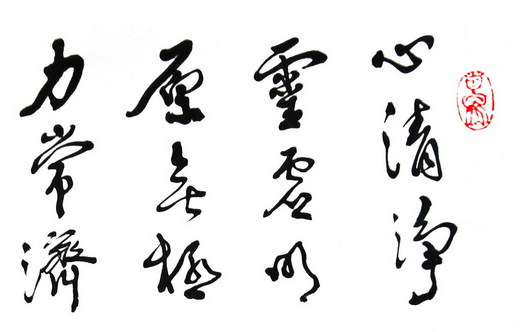 心清淨
靈虛明
愿無極
力常濟